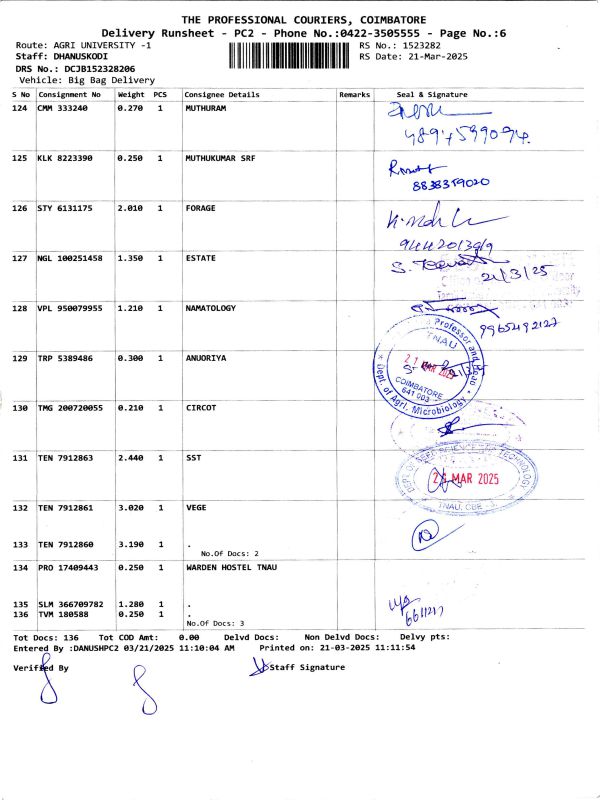 THE PROFESSIONAL COURIERS, COIMBATORE
Delivery Runsheet - PC2 - Phone No.:0422-3505555 - Page No.:6
Route: AGRI UNIVERSITY -1 RS No.: 1523282
Staff: DHANUSKODI RS Date: 21-Mar-2025
DRS No.: DCJB152328206
Vehicle: Big Bag Delivery
S No Consignment No Weight PCS Consignee Details Remarks Seal & Signature
124 CMM 333240 0.270 1 MUTHURAM
125 KLK 8223390 0.250 1 MUTHUKUMAR SRF
8838359020
126 STY 6131175 2.010 1 FORAGE
127 NGL 100251458 1.350 1 ESTATE
21/3/25
128 VPL 950079955 1.210 1 NAMATOLOGY
9965492127
129 TRP 5389486 0.300 1 ANUORIYA
Professor and Head
TNAU
21 MAR 2025
COIMBATORE
641 003
Dept. of Agri. Microbiology
130 TMG 200720055 0.210 1 CIRCOT
131 TEN 7912863 2.440 1 SST
DEPT OF SEED SCIENCE AND TECHNOLOGY
MAR 2025
TNAU, CBE - 3.
132 TEN 7912861 3.020 1 VEGE
133 TEN 7912860 3.190 1 .
No.Of Docs: 2
134 PRO 17409443 0.250 1 WARDEN HOSTEL TNAU
135 SLM 366709782 1.280 1 .
136 TVM 180588 0.250 1 .
No.Of Docs: 3
6611217
Tot Docs: 136 Tot COD Amt: 0.00 Delvd Docs: Non Delvd Docs: Delvy pts:
Entered By :DANUSHPC2 03/21/2025 11:10:04 AM Printed on: 21-03-2025 11:11:54
Verified By Staff Signature